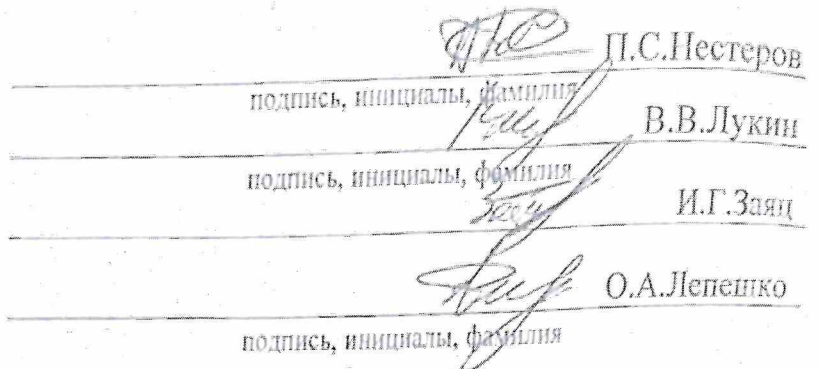 П.С.Нестеров
подпись, инициалы, фамилия
В.В.Лукин
подпись, инициалы, фамилия
И.Г.Заяц
О.А.Лепешко
подпись, инициалы, фамилия